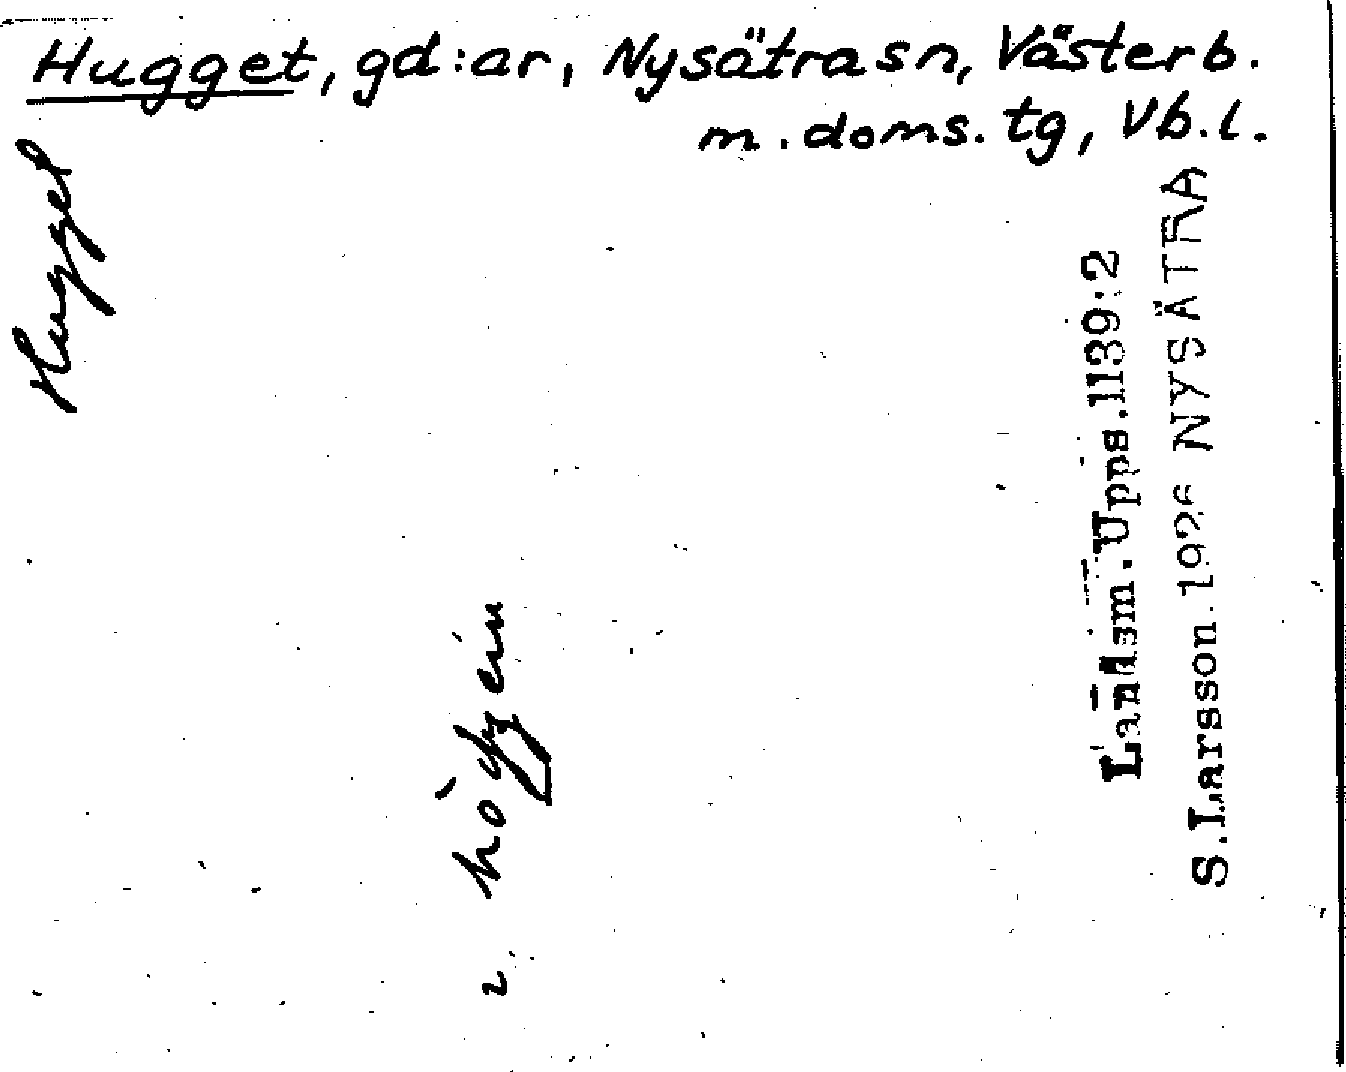 Hugget, gd:ar, Nysätra sn, Västerb.
m. doms. tg, Vb.l.
Hugget
Landsm. Upps. 1139:2
S. Larsson. 1926 NYSÄTRA